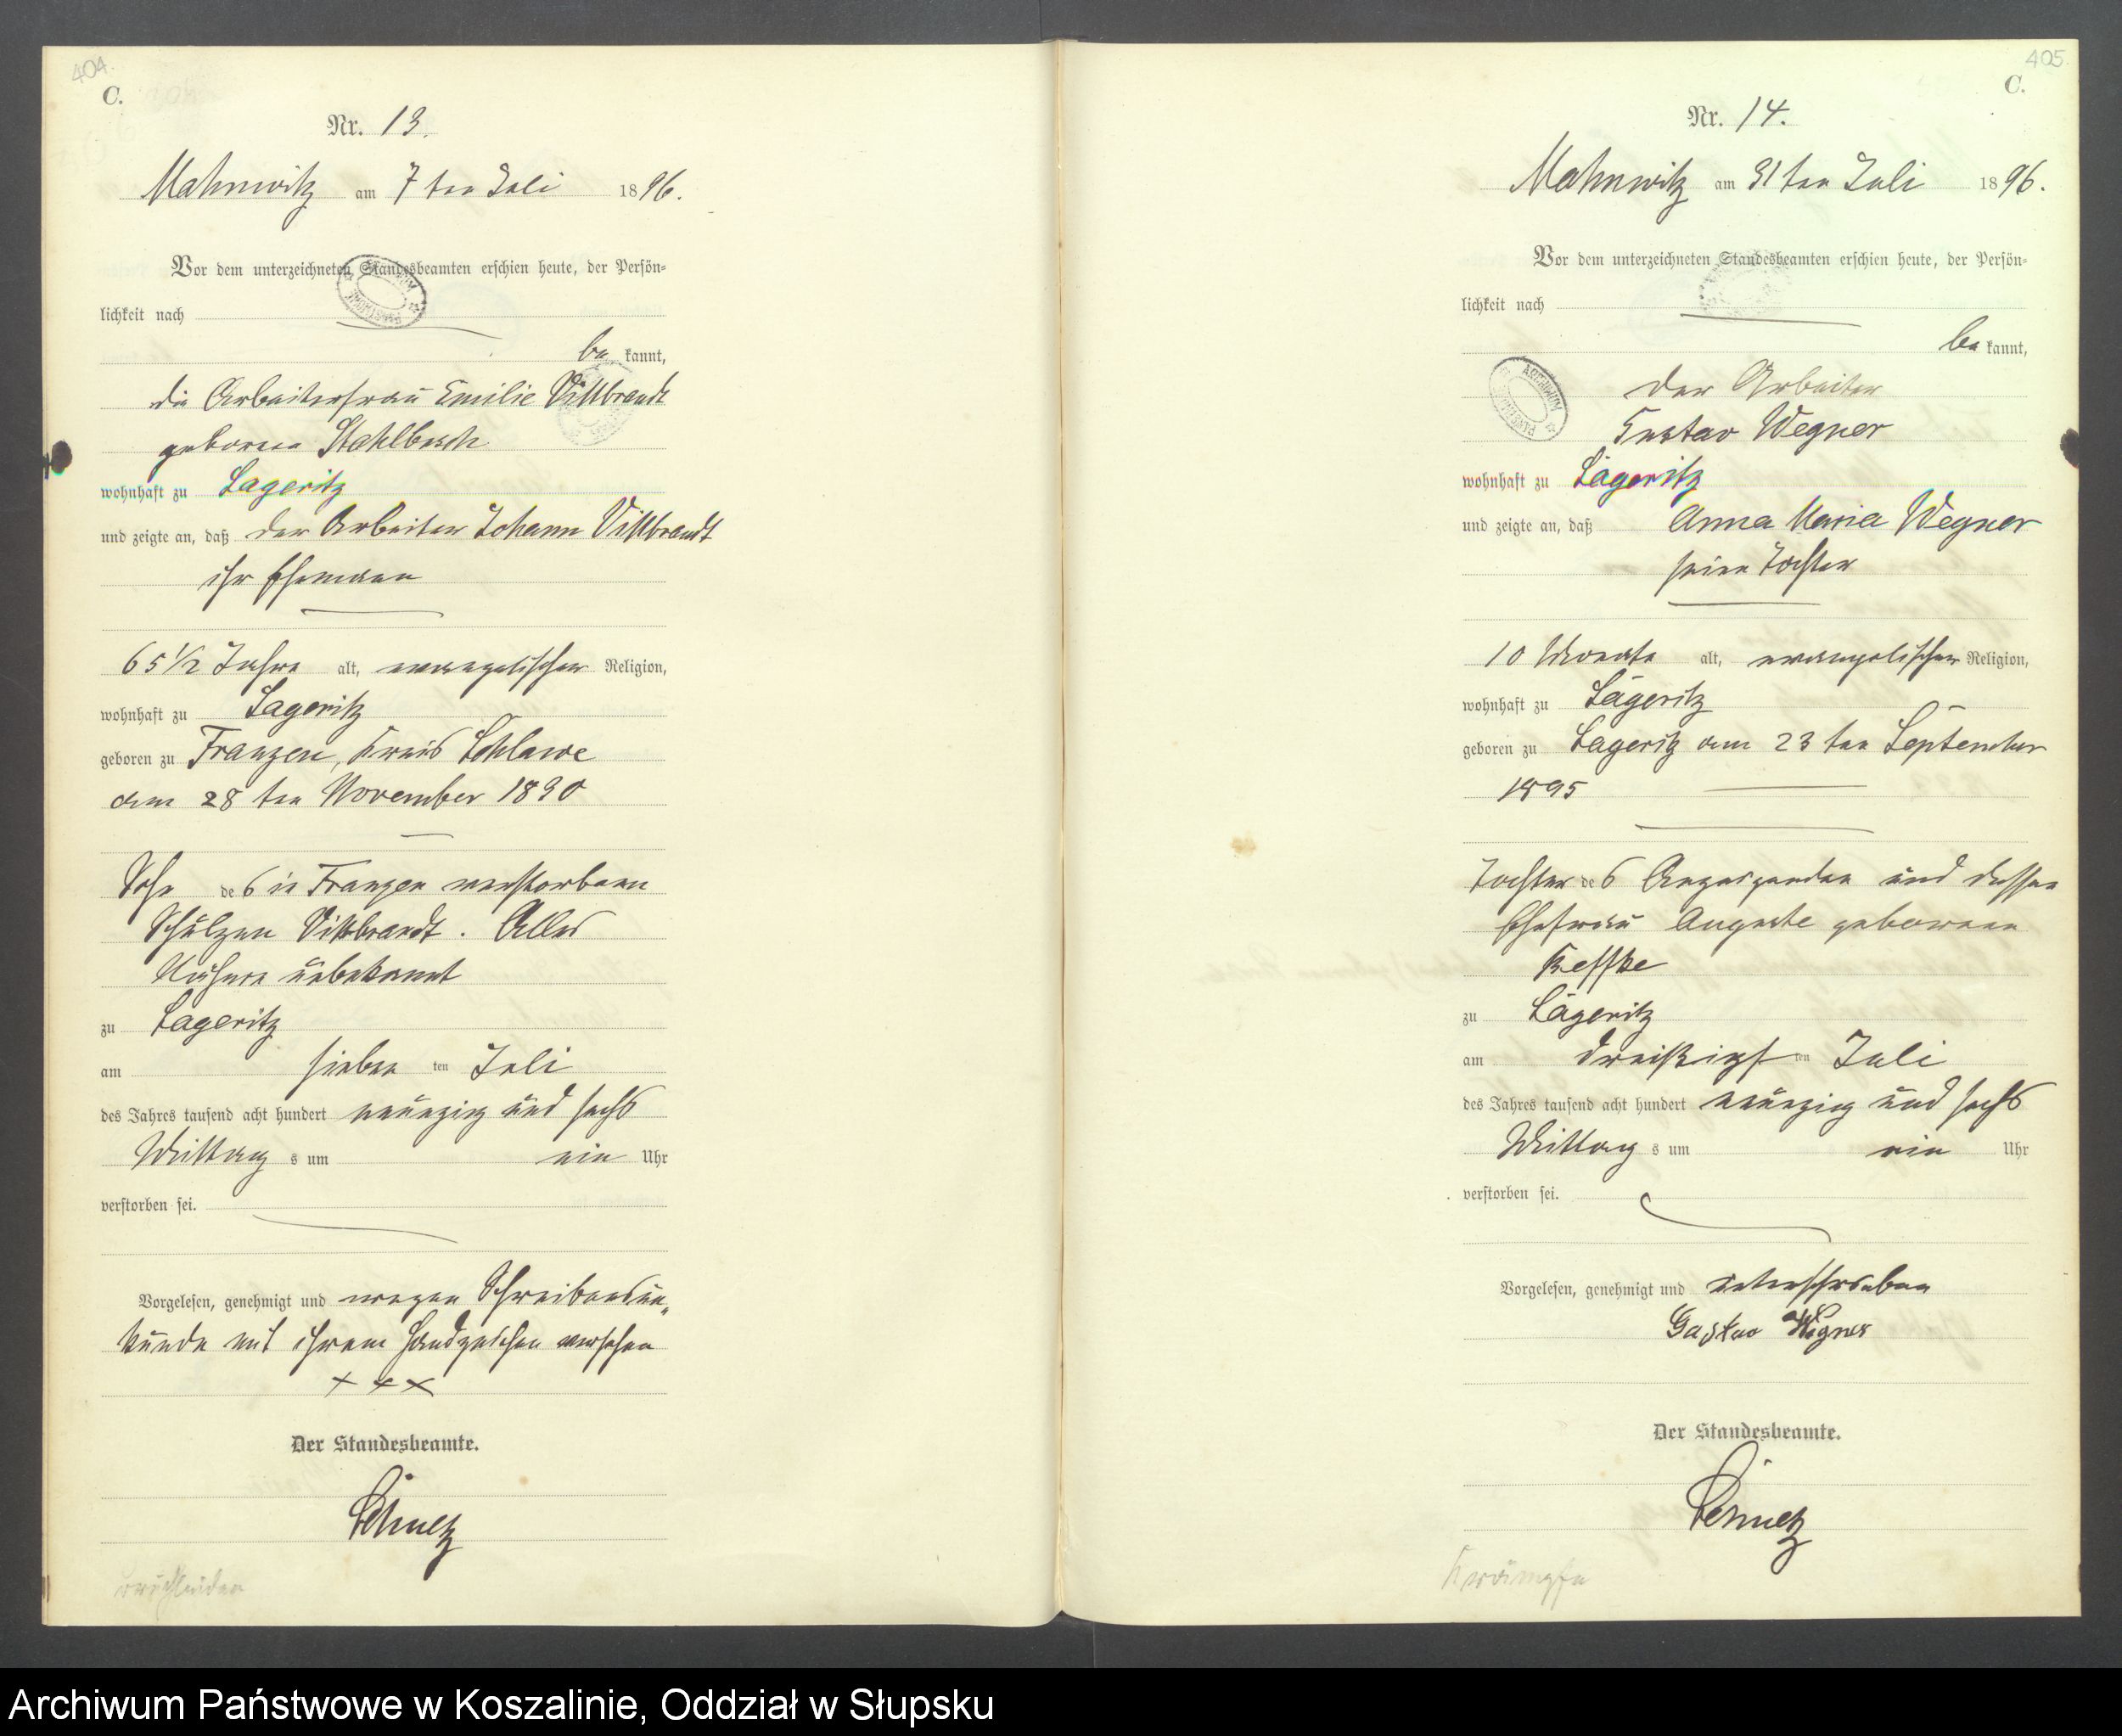 404.
C.
Nr. 13.
Mahnwitz am 7 ten Juli 1896.
Vor dem unterzeichneten Standesbeamten erschien heute, der Persön-
lichkeit nach
be kannt,
die Arbeiterfrau Emilie Villbrandt
geborene
wohnhaft zu Lageritz
und zeigte an, daß der Arbeiter Johann Villbrandt
ihr Ehemann
65 1/2 Jahre alt, evangelischer Religion,
wohnhaft zu Lageritz
geboren zu Franzen, Kreis Schlawe
am 28 ten November 1830
Sohn des in Franzen verstorbenen
Schulzen Villbrandt. Alles
Nähere unbekannt
zu Lageritz
am sieben ten Juli
des Jahres tausend acht hundert neunzig und sechs
Mittags um ein Uhr
verstorben sei.
Vorgelesen, genehmigt und wegen Schreibensun-
kunde mit ihrem Handzeichen versehen
+ + +
Der Standesbeamte.
405.
C.
Nr. 14.
Mahnwitz am 31 ten Juli 1896.
Vor dem unterzeichneten Standesbeamten erschien heute, der Persön-
lichkeit nach
be kannt,
der Arbeiter
Gustav Wegner
wohnhaft zu Lägeritz
und zeigte an, daß Anna Maria Wegner
seine Tochter
10 Monate alt, evangelischer Religion,
wohnhaft zu Lägeritz
geboren zu Lageritz am 23 ten September
1895
Tochter des Anzeigenden und dessen
Ehefrau Auguste geborenen
zu Lägeritz
am dreißigst ten Juli
des Jahres tausend acht hundert neunzig und sechs
Mittags um ein Uhr
verstorben sei.
Vorgelesen, genehmigt und unterschrieben
Gustav Wegner
Der Standesbeamte.
Krämpfe
Archiwum Państwowe w Koszalinie, Oddział w Słupsku